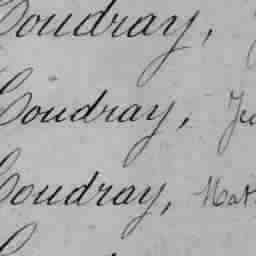 Coudray,
Coudray, Je
Coudray, Mat